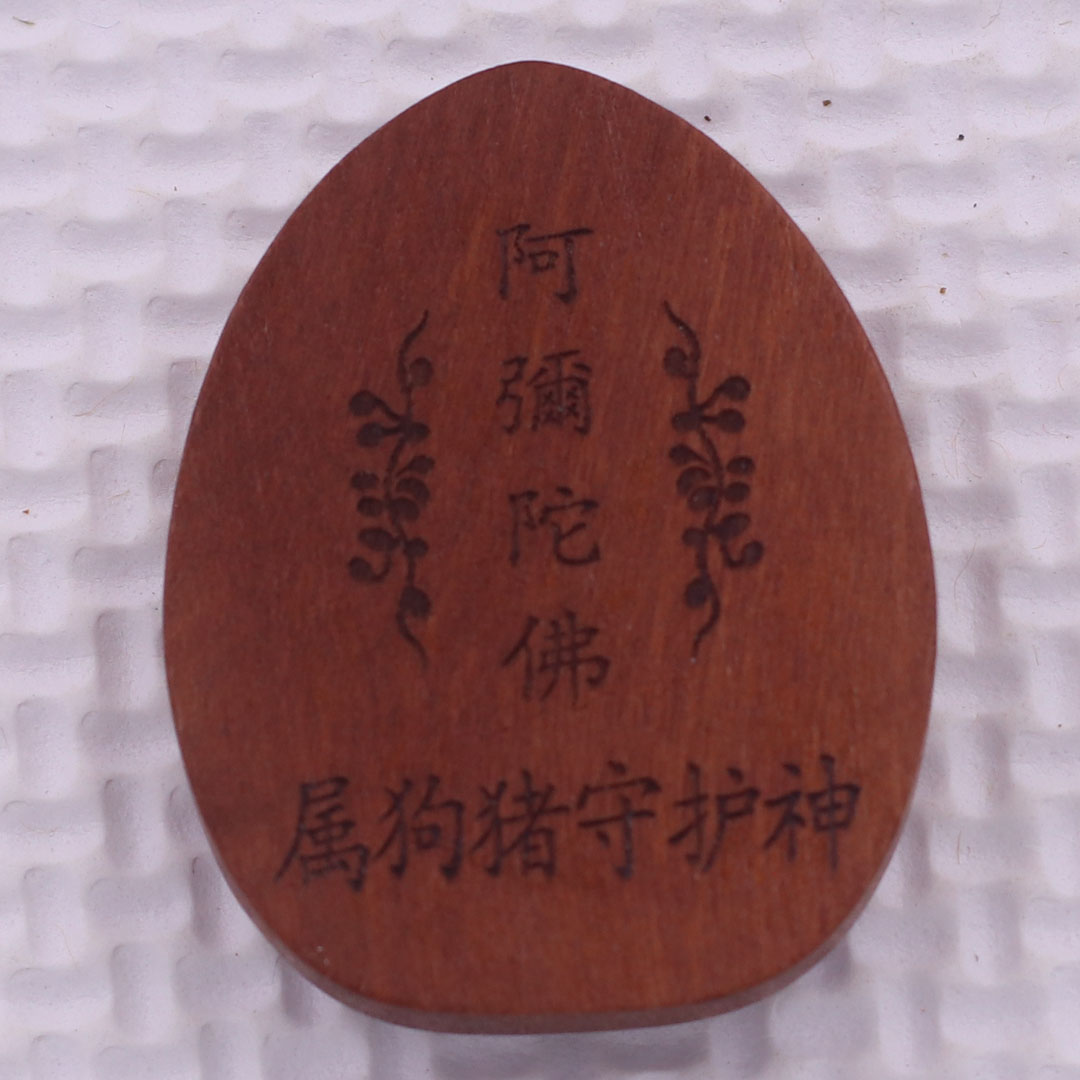 阿彌陀佛
属狗猪守护神